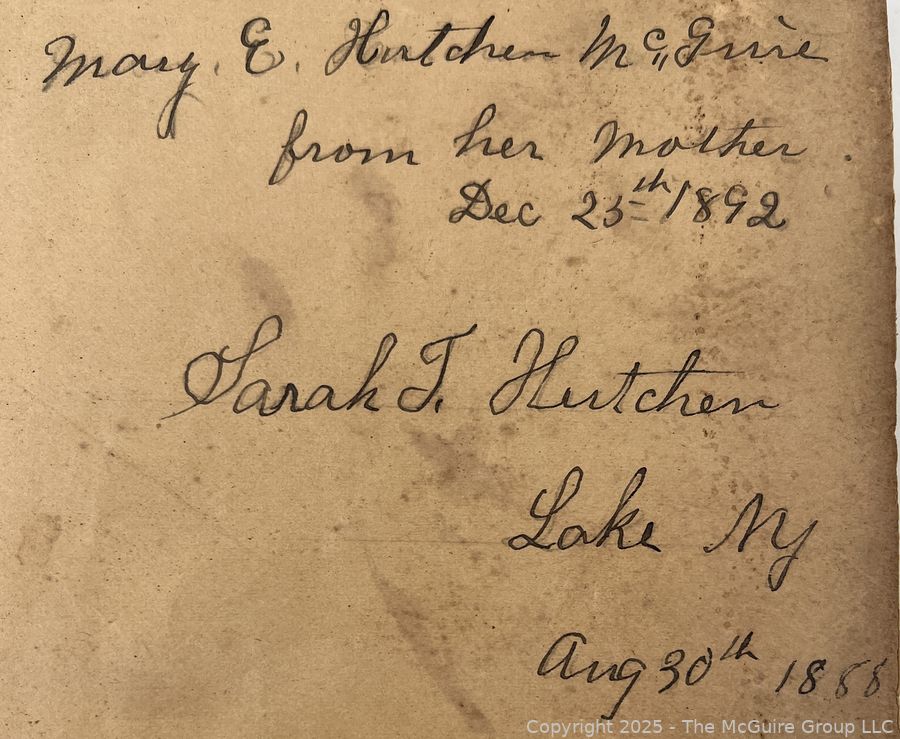 Mary. E. Hutchen Mc„Guire
from her Mother.
Dec 25th 1892
Sarah T. Hutchen
Lake NY
Aug 30th 1888
Copyright 2025 - The McGuire Group LLC